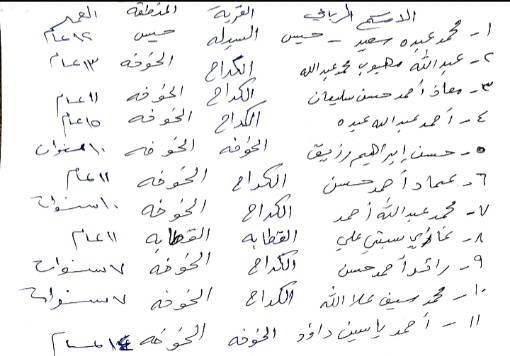 الاسم الرباعي القرية المنطقة العمر
١- محمد عبده سعيد - حيس السيله حيس ١٢ عام
٢- عبدالله مهيوب محمد عبدالله الكداح الخوخه ١٣ عام
٣- معاذ أحمد حسن سليمان الكداح الخوخه ١١ عام
٤- أحمد عبدالله عبده الكداح الخوخه ١٥ عام
٥- حسن إبراهيم رزيق الخوخه الخوخه ١٠ سنوات
٦- عماد أحمد حسن الكداح الخوخه ١١ عام
٧- محمد عبدالله أحمد الكداح الخوخه ١٠ سنوات
٨- غازي علي القطابه القطابه ١١ عام
٩- رائد أحمد حسن الكداح الخوخه ٧ سنوات
١٠- محمد سيف علا الله الكداح الخوخه ٧ سنوات
١١- أحمد ياسين داؤد الخوخه الخوخه عام